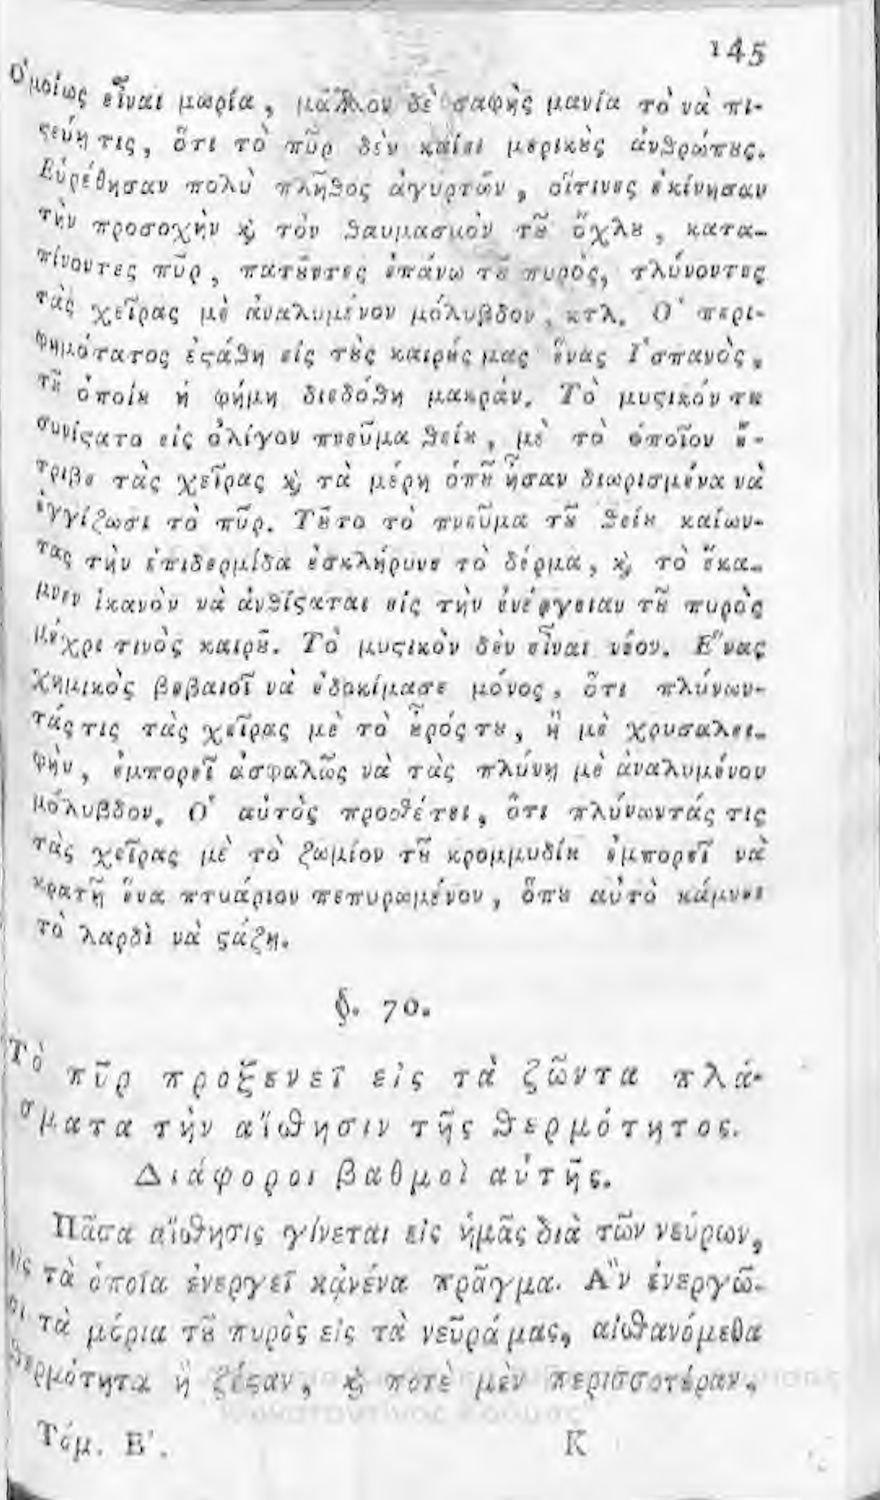 145
Ὁμοίως εἶναι μωρία, μᾶλλον δὲ σαφὴς μανία τὸ νὰ πι-
ϛεύῃ τις, ὅτι τὸ πῦρ δὲν καίει μερικȣ̀ς ἀνθρώπȣς.
Εὑρέθησαν πολὺ πλῆθος ἀγυρτῶν, οἵτινες ἐκίνησαν
τὴν προσοχὴν ϗ τὸν θαυμασμὸν τȣ͂ ὄχλȣ, κατα-
πίνοντες πῦρ, πατȣ͂ντες ἐπάνω τȣ͂ πυρὸς, πλύνοντες
τὰς χεῖρας μὲ ἀναλυμένον μόλυβδον, κτλ. Ὁ περι-
φημότατος ἐϛάθη εἰς τȣ̀ς καιρȣ́ς μας ἕνας Ἱσπανὸς,
τȣ͂ ὁποίȣ ἡ φήμη διεδόθη μακράν. Τὸ μυϛικόν τȣ
συνίϛατο εἰς ὀλίγον πνεῦμα θείȣ, μὲ τὸ ὁποῖον ἔ-
τριβε τὰς χεῖρας ϗ τὰ μέρη ὁπȣ͂ ἦσαν διωρισμένα νὰ
ἐγγίζωσι τὸ πῦρ. Τȣ͂το τὸ πνεῦμα τȣ͂ θείȣ καίων-
τας τὴν ἐπιδερμίδα ἐσκλήρυνε τὸ δέρμα, ϗ τὸ ἔκα-
μνεν ἱκανὸν νὰ ἀνθίϛαται εἰς τὴν ἐνέργειαν τȣ͂ πυρὸς
μέχρι τινὸς καιρȣ͂. Τὸ μυϛικὸν δὲν εἶναι νέον. Ἕνας
χημικὸς βεβαιοῖ νὰ ἐδοκίμασε μόνος, ὅτι πλύνων-
τάς τις τὰς χεῖρας μὲ τὸ ȣ̓͂ρός τȣ, ἢ μὲ χρυσαλει-
φὴν, ἐμπορεῖ ἀσφαλῶς νὰ τὰς πλύνῃ μὲ ἀναλυμένον
μόλυβδον. Ὁ αὐτὸς προσθέτει, ὅτι πλύνωντάς τις
τὰς χεῖρας μὲ τὸ ζωμίον τȣ͂ κρομμυδίȣ ἐμπορεῖ νὰ
κρατῇ ἕνα πτυάριον πεπυρωμένον, ὅπȣ αὐτὸ κάμνει
τὸ λαρδὶ νὰ ϛάζῃ.
§. 70.
Τὸ πῦρ προξενεῖ εἰς τὰ ζῶντα πλά-
σματα τὴν αἴσθησιν τῆς θερμότητος.
Διάφοροι βαθμοὶ αὐτῆς.
Πᾶσα αἴσθησις γίνεται εἰς ἡμᾶς διὰ τῶν νεύρων,
εἰς τὰ ὁποῖα ἐνεργεῖ κᾀνένα πρᾶγμα. Ἂν ἐνεργῶ-
σι τὰ μόρια τȣ͂ πυρὸς εἰς τὰ νεῦρά μας, αἰσθανόμεθα
θερμότητα ἢ ζέϛαν, ϗ ποτὲ μὲν περισσοτέραν,
Τόμ. Β'. Κ